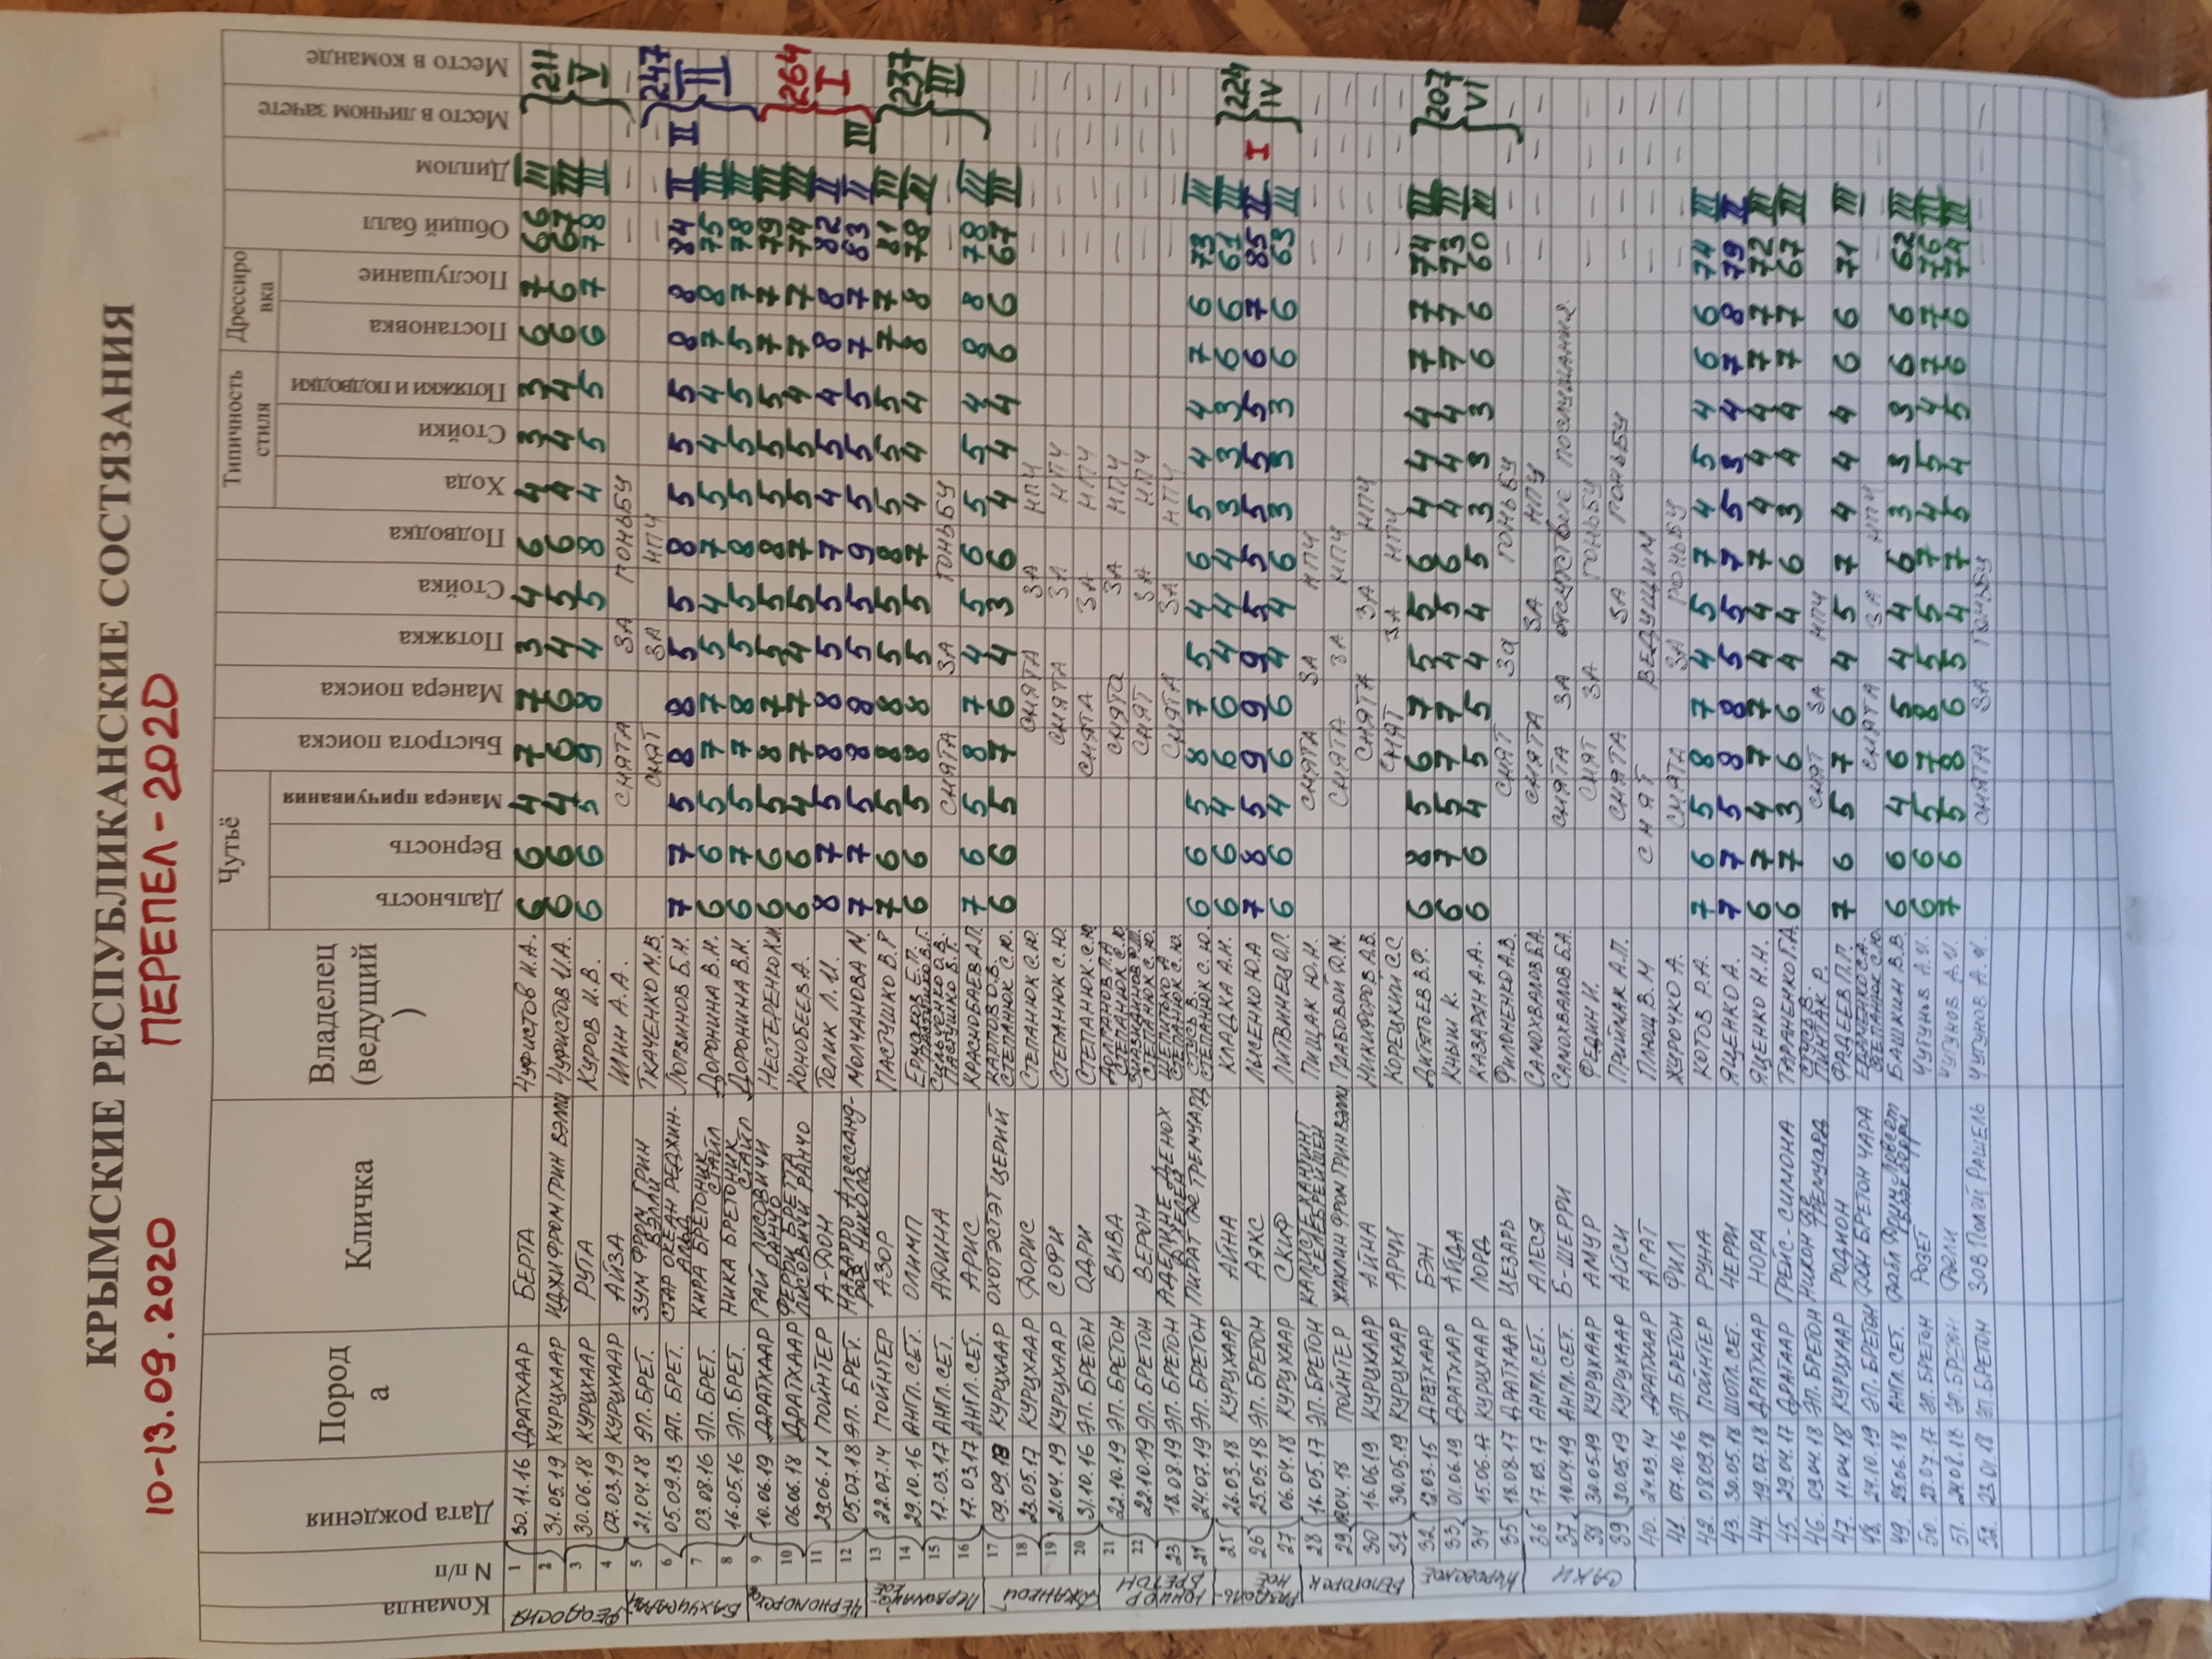 КРЫМСКИЕ РЕСПУБЛИКАНСКИЕ СОСТЯЗАНИЯ
10-13.09.2020 ПЕРЕПЕЛ-2020
Команда N п/п Дата рождения Порода Кличка Владелец (ведущий) Чутьё Дальность Верность Манера причуивания Быстрота поиска Манера поиска Потяжка Стойка Подводка Типичность стиля Хода Стойки Потяжки и подводки Дрессировка Постановка Послушание Общий балл Диплом Место в личном зачете Место в команде
ФЕОДОСИЯ
1 30.11.16 ДРАТХААР БЕРТА ЧУФИСТОВ И.А. 6 6 4 7 7 3 4 6 4 3 3 6 7 66 III
2 31.05.19 КУРЦХААР ИДЖИ ФРОМ ГРИН ВЭЛЛИ ЧУФИСТОВ И.А. 6 6 4 6 6 4 5 6 4 4 4 6 6 67 III } 211 V
3 30.06.18 КУРЦХААР РУТА КУРОВ И.В. 6 6 5 9 8 4 5 8 4 5 5 6 7 78 III
4 07.03.19 КУРЦХААР АЙЗА ШИН А.А. СНЯТА ЗА ГОНЬБУ — — — —
5 21.04.18 ЭП. БРЕТ. ЗУМ ФРОМ ГРИН ВЭЛЛИ ТКАЧЕНКО М.В. СНЯТ ЗА НПЧ — — —
6 05.09.13 ЭП. БРЕТ. ЛОГВИНОВ Б.Н. 7 7 5 8 8 5 5 8 5 5 5 8 8 84 II II } 247 II
7 03.08.16 ЭП. БРЕТ. КИРА БРЕТОНИК СТАЙЛ ДОРОНИНА В.Н. 6 6 5 7 7 5 4 7 5 4 4 7 8 75 III
8 16.05.16 ЭП. БРЕТ. НИКА БРЕТОНИК СТАЙЛ ДОРОНИНА В.Н. 6 7 5 7 8 5 5 8 5 5 5 5 7 78 III
9 10.06.19 ДРАТХААР ГАЙ ЛИСОВИЧИ РАНЧО НЕСТЕРЕНКО К.И. 6 6 5 8 7 5 5 8 5 5 5 7 7 79 III
10 06.06.18 ДРАТХААР ФЕРРИ БРЕТТА ЛИСОВИЧИ РАНЧО КОНОБЕЕВ А. 6 6 4 7 7 4 5 7 5 5 4 7 7 74 III } 264 I
11 29.06.11 ПОЙНТЕР А-ДОН ТОЛИК Л.И. 8 7 5 8 8 5 5 7 4 5 4 8 8 82 II
12 05.07.18 ЭП. БРЕТ. МОЛЧАНОВА М. 7 7 5 8 8 5 5 9 5 5 5 7 7 83 II III
13 22.07.14 ПОЙНТЕР АЗОР ПАСТУШКО В.Г. 7 6 5 8 8 5 5 8 5 5 5 7 7 81 III } 237 III
14 29.10.16 АНГЛ. СЕТ. ОЛИМП ЕРМАКОВ Е.П. 6 6 5 8 8 5 5 7 4 4 4 8 8 78 III
15 17.03.17 АНГЛ. СЕТ. АФИНА ПАСТУШКО В.Г. СНЯТА ЗА ГОНЬБУ — — —
16 17.03.17 АНГЛ. СЕТ. АРИС КРАСНОБАЕВ А.П. 7 6 5 8 7 4 5 6 5 5 4 8 8 78 III
ДЖАНКОЙ
17 09.09.18 КУРЦХААР ОХОТЭСТЭТ ЦЕРИЙ КАРПОВ О.В. СТЕПАНЮК С.Ю. 6 6 5 7 6 4 3 6 4 4 4 6 6 67 III
18 23.05.17 КУРЦХААР ДОРИС СТЕПАНЮК С.Ю. СНЯТА ЗА НПЧ — — — —
19 21.04.19 КУРЦХААР СОФИ СТЕПАНЮК С.Ю. СНЯТА ЗА НПЧ — — — —
20 31.10.16 ЭП. БРЕТОН ОДРИ СТЕПАНЮК С.Ю. СНЯТА ЗА НПЧ — — — —
ЮНИОР БРЕТОН
21 22.10.19 ЭП. БРЕТОН ВИВА СТЕПАНЮК С.Ю. СНЯТА ЗА НПЧ — — — —
22 22.10.19 ЭП. БРЕТОН ВЕРОН СТЕПАНЮК С.Ю. СНЯТ ЗА НПЧ — — — —
23 18.08.19 ЭП. БРЕТОН СТЕПАНЮК С.Ю. СНЯТА ЗА НПЧ — — — —
24 24.07.19 ЭП. БРЕТОН ПИРАТ ДЕ ТРЕМУАРД СТЕПАНЮК С.Ю. 6 6 5 8 7 5 4 6 5 4 4 7 6 73 III
25 26.03.18 КУРЦХААР АЙНА КЛАДКА А.Н. 6 6 4 6 6 4 4 4 3 3 3 6 6 61 III
26 25.05.18 ЭП. БРЕТОН АЯКС ЛЫСЕНКО Ю.А. 7 8 5 9 9 9 5 5 5 5 5 6 7 85 II I } 224 IV
27 06.04.18 КУРЦХААР СКИФ ЛИТВИНЕЦ О.П. 6 6 4 6 6 4 4 6 3 3 3 6 6 63 III
БЕЛОГОРСК
28 16.05.17 ЭП. БРЕТОН ПИЩАК Ю.Н. СНЯТА ЗА НПЧ — — — —
29 04.18 ПОИНТЕР ЖАКЛИН ФРОМ ГРИН ВЭЛЛИ СНЯТА ЗА НПЧ — — — —
30 16.06.19 КУРЦХААР АЙНА НИКИФОРОВ А.В. СНЯТА ЗА НПЧ — — — —
31 30.05.19 КУРЦХААР АРЧИ КОРЕЦКИЙ С.С. СНЯТ ЗА НПЧ — — — —
КИРОВСКОЕ
32 12.03.15 ДРАТХААР БЭН ДИТЯТЬЕВ В.Ф. 6 8 5 6 7 5 5 6 4 4 4 7 7 74 III
33 01.06.19 ДРАТХААР АЙДА КИЯШ К. 6 7 5 7 7 4 5 6 4 4 4 7 7 73 III } 207 VI
34 15.06.17 КУРЦХААР ЛОРД КАЗАРЯН А.А. 6 6 4 5 5 4 4 5 3 3 3 6 6 60 III
35 18.08.17 ДРАТХААР ЦЕЗАРЬ ФИЛОНЕНКО А.В. СНЯТ ЗА ГОНЬБУ — — — —
САКИ
36 17.03.17 АНГЛ. СЕТ. АЛЕСЯ САМОХВАЛОВ Б.А. СНЯТА ЗА НПЧ — — — —
37 10.04.19 АНГЛ. СЕТ. Б-ШЕРРИ САМОХВАЛОВ Б.А. СНЯТА ЗА отсутствие послушания — — — —
38 30.05.19 КУРЦХААР АМУР ФЕДИН И. СНЯТ ЗА ГОНЬБУ — — — —
39 30.05.19 КУРЦХААР АЙСИ ПРИЙМАК А.П. СНЯТА ЗА ГОНЬБУ — — — —
40. 24.03.14 ДРАТХААР АГАТ ПЛЮЩ В.М СНЯТ ВЕДУЩИМ — — — —
41 07.10.16 ЭП БРЕТОН ФИЛ ЖУРОЧКО А. СНЯТА ЗА ГОНЬБУ — — — —
42. 08.09.18 ПОЙНТЕР РУНА КОТОВ Р.А. 7 6 5 8 7 4 5 7 4 5 4 6 6 74 III
43. 30.05.18 ШОТЛ. СЕТ. ЧЕРРИ ЯЦЕНКО А. 7 7 5 8 8 5 5 7 5 3 4 7 8 79 II
44. 19.07.18 ДРАТХААР НОРА ЯЦЕНКО Н.Н. 6 7 4 7 7 4 4 7 4 4 4 7 7 72 III
45. 29.04.17 ДРАТХААР ГРЕЙС-СИМОНА ТАРАНЕНКО Г.А. 6 7 3 6 6 4 4 6 3 4 4 7 7 67 III
46. 03.04.18 ЭП. БРЕТОН НИКОН ДЕ ТРЕМУАРД ПИНТАК Р. СНЯТ ЗА НПЧ
47. 11.04.18 КУРЦХААР РОДИОН ФАДЕЕВ П.П. 7 6 5 7 6 4 5 7 4 4 4 6 6 71 III
48. 24.10.19 ЭП. БРЕТОН ДОН БРЕТОН ЧАРА СТЕПАНЮК С.Ю. СНЯТА ЗА НПЧ — — — —
49. 25.06.18 АНГЛ. СЕТ. БАШКИН В.В. 6 6 4 6 5 4 4 6 3 3 3 6 6 62 III
50. 21.07.17 ЭП. БРЕТОН РОЗЕТ ЧУГУНОВ А.И. 6 6 5 7 8 5 5 7 4 5 4 7 7 76 III
51. 24.08.18 ЭП. БРЕТОН ЧУГУНОВ А.И. 7 6 5 8 6 5 4 7 5 4 5 6 6 74 III
52. 23.01.18 ЭП. БРЕТОН ЗОВ ПОЛЕЙ РАШЕЛЬ ЧУГУНОВ А.И. СНЯТА ЗА ГОНЬБУ — — — —